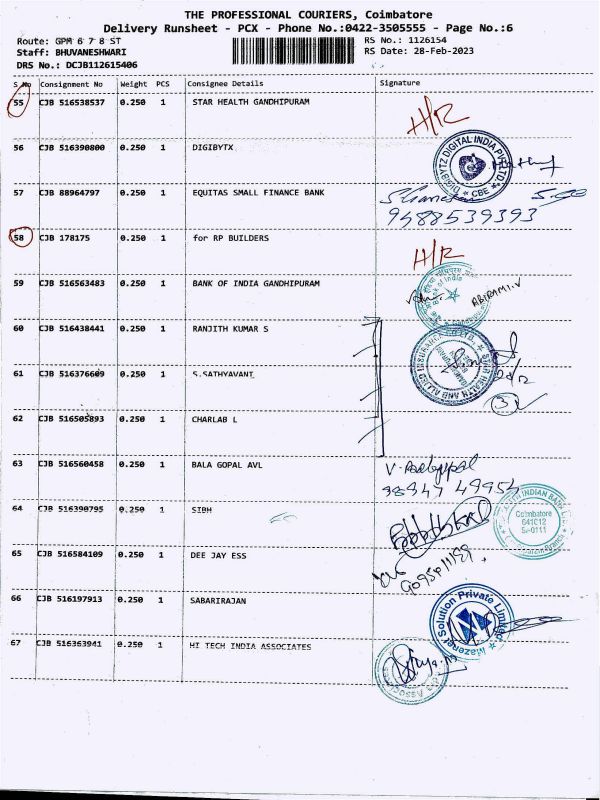 THE PROFESSIONAL COURIERS, Coimbatore
Delivery Runsheet - PCX - Phone No.:0422-3505555 - Page No.:6
Route: GPM 6 7 8 ST
RS No.: 1126154
Staff: BHUVANESHWARI
RS Date: 28-Feb-2023
DRS No.: DCJB112615406
S.No Consignment No Weight PCS Consignee Details Signature
55 CJB 516538537 0.250 1 STAR HEALTH GANDHIPURAM
H/R
56 CJB 516390800 0.250 1 DIGIBYTX
DIGIBYTZ DIGITAL INDIA PVT LTD
CBE
57 CJB 88964797 0.250 1 EQUITAS SMALL FINANCE BANK
9488539393
58 CJB 178175 0.250 1 for RP BUILDERS
H/R
59 CJB 516563483 0.250 1 BANK OF INDIA GANDHIPURAM
Bank of India
ABIRAMI.V
60 CJB 516438441 0.250 1 RANJITH KUMAR S
STAR HEALTH AND ALLIED INSURANCE CO LTD.
61 CJB 516376609 0.250 1 S.SATHYAVANT
62 CJB 516505893 0.250 1 CHARLAB L
63 CJB 516560458 0.250 1 BALA GOPAL AVL
V. Balagopal
38947 49954
64 CJB 516390795 0.250 1 SIBH
INDIAN BANK
Coimbatore
641012
65 CJB 516584109 0.250 1 DEE JAY ESS
66 CJB 516197913 0.250 1 SABARIRAJAN
Mazenet Solution Private Limited
67 CJB 516363941 0.250 1 HI TECH INDIA ASSOCIATES